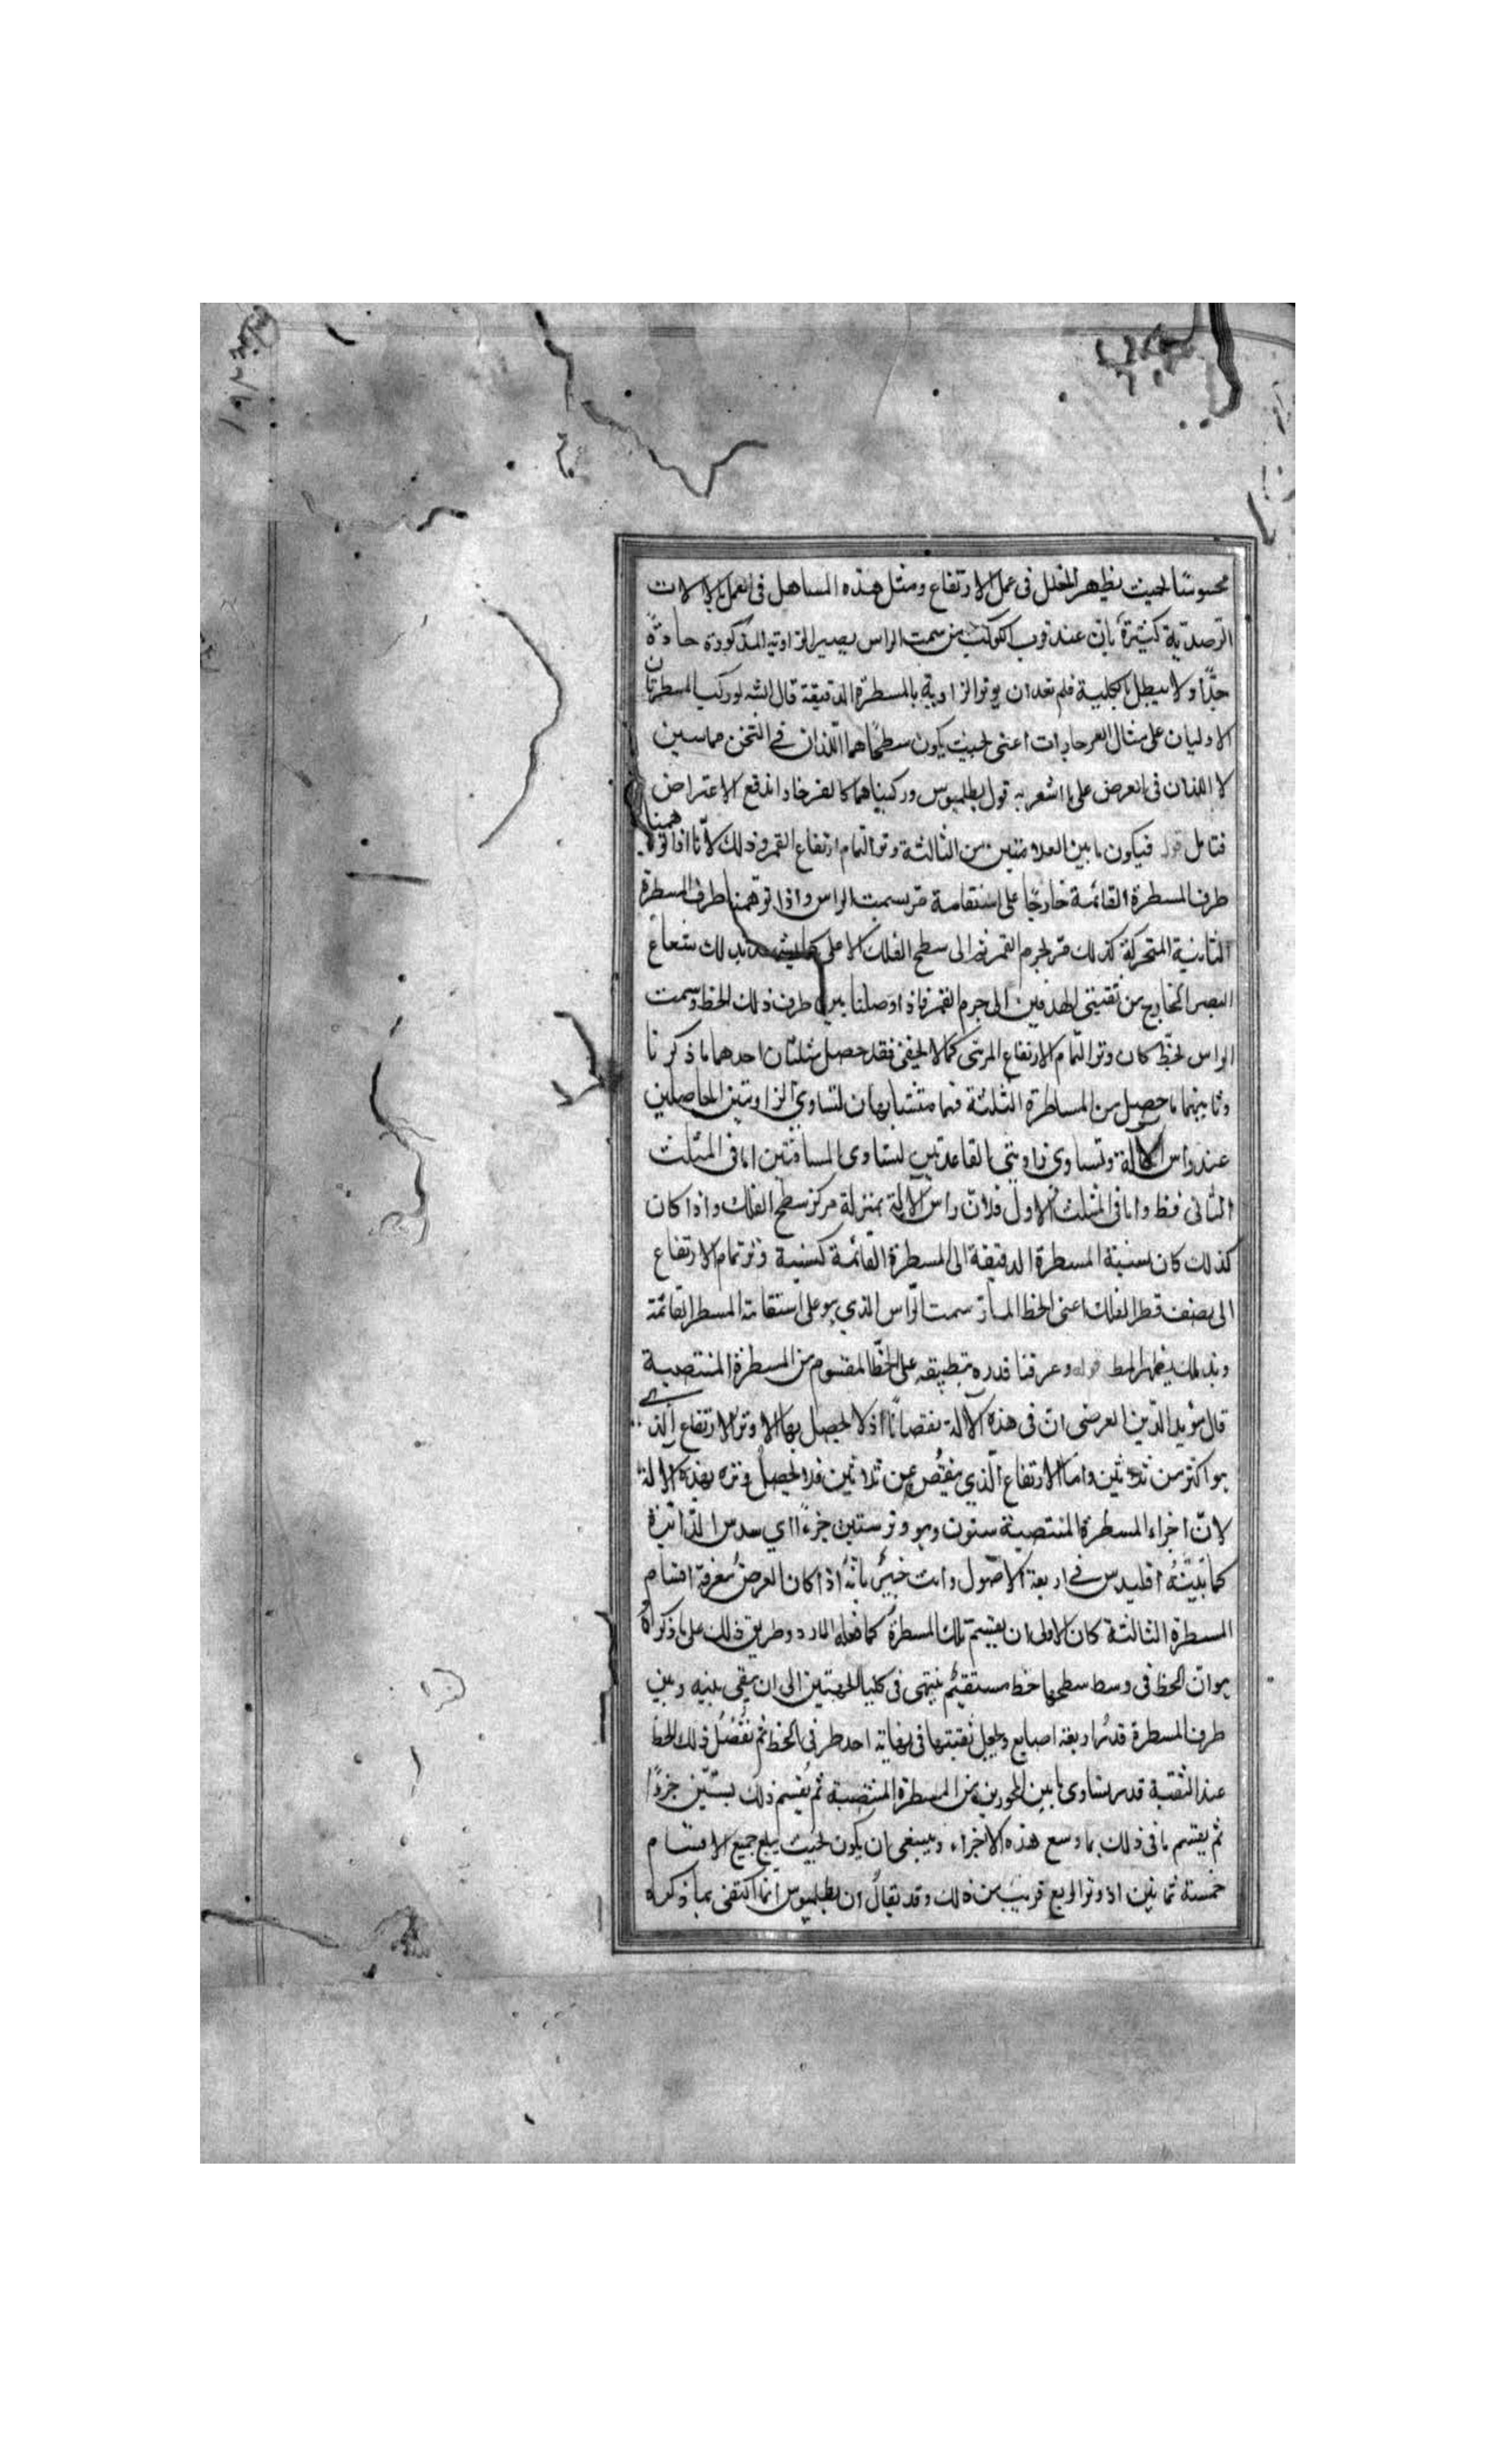 محسوسًا بحيث يظهر الخلل فى عمل الارتفاع ومثل هذه المساهل فى العمل بالالات
الرصدية كثيرة بان عند قرب الكوكب من سمت الراس يصير الزاوية المذكورة حادة
جدًّا ولا يبطل بالكلية فلم نعد ان يوتر الزاوية بالمسطرة الدقيقة قال الش لو ركب المسطرتان
الاوليان على مثال الفرجارات اعنى بحيث يكون سطحاهما اللذان فى الثخن مماسين
لا اللذان فى العرض على ما اشعر به قول بطلميوس وركبناهما كالفرجار اندفع الاعتراض
فتامل قوله فيكون ما بين العلامتين من الثالثة وتر التمام ارتفاع القمر وذلك لانا اذا توهمنا
طرف المسطرة القائمة خارجًا على استقامة مر بسمت الراس واذا توهمنا طرف المسطرة
الثانية المتحركة كذلك مر بجرم القمر الى سطح الفلك الاعلى شعاع
البصر الخارج من ثقبتى الهدفين الى جرم القمر فاذا وصلنا بين طرف ذلك الخط وسمت
الراس بخط كان وتر التمام الارتفاع المرئى كما لا يخفى فقد حصل مثلثان احدهما ما ذكرنا
وثانيهما ما حصل من المساطرة الثلثة فهما متشابهان لتساوى الزاويتين الحاصلين
عند راس الالة وتساوى زاويتى القاعدتين لتساوى المسافتين اما فى المثلث
الثانى فظ واما فى المثلث الاول فلان راس الالة بمنزلة مركز سطح الفلك واذا كان
كذلك كان نسبة المسطرة الدقيقة الى المسطرة القائمة كنسبة وتر تمام الارتفاع
الى نصف قطر الفلك اعنى الخط المار سمت الراس الذى هو على استقامة المسطر القائمة
وبذلك يظهر المط قوله وعرفنا قدره بتطبيقه على الخط المقسوم من المسطرة المنتصبة
قال مؤيد الدين العرضى ان فى هذه الالة نقصانًا اذ لا يحصل بها الا وتر الارتفاع الذى
هو اكثر من ثلاثين واما الارتفاع الذى ينقص عن ثلاثين فلا يحصل وتره بهذه الالة
لان اجزاء المسطرة المنتصبة ستون وهو وتر ستين جزءًا اى سدس الدائرة
كما بيّنه اقليدس فى اربعة الاصول وانت خبير بانه اذا كان الغرض معرفة اقسام
المسطرة الثالثة كان الاولى ان يقسم تلك المسطرة كما فعله المارد وطريق ذلك على ما ذكروا
هو ان الخط فى وسط سطحها خط مستقيم ينتهى فى كلتا الجهتين الى ان يبقى بينه وبين
طرف المسطرة قدر اربعة اصابع ويجعل ثقبتها فى نهاية احد طرفى الخط ثم نفصل ذلك الخط
عند الثقبة قدر يساوى ما بين المحورين من المسطرة المنتصبة ثم يقسم ذلك بستين جزءًا
ثم يقسم باقى ذلك بما وسع هذه الاجزاء وينبغى ان يكون بحيث يبلغ جميع الاقسام
خمسة ثمانين اذ وتر الربع قريب من ذلك وقد يقال ان بطلميوس انما اكتفى بما ذكره